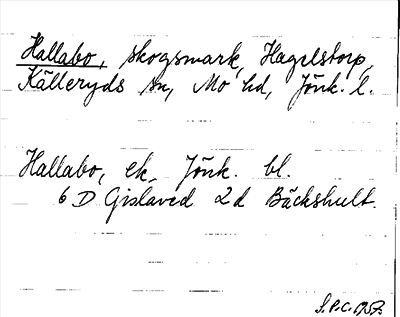 Hallabo, skogsmark, Hagelstorp,
Källeryds sn, Mo hd, Jönk. l.
Hallabo, ek, Jönk. bl.
6 D Gislaved 2 d Bäckshult.
S.P.C. 1957.